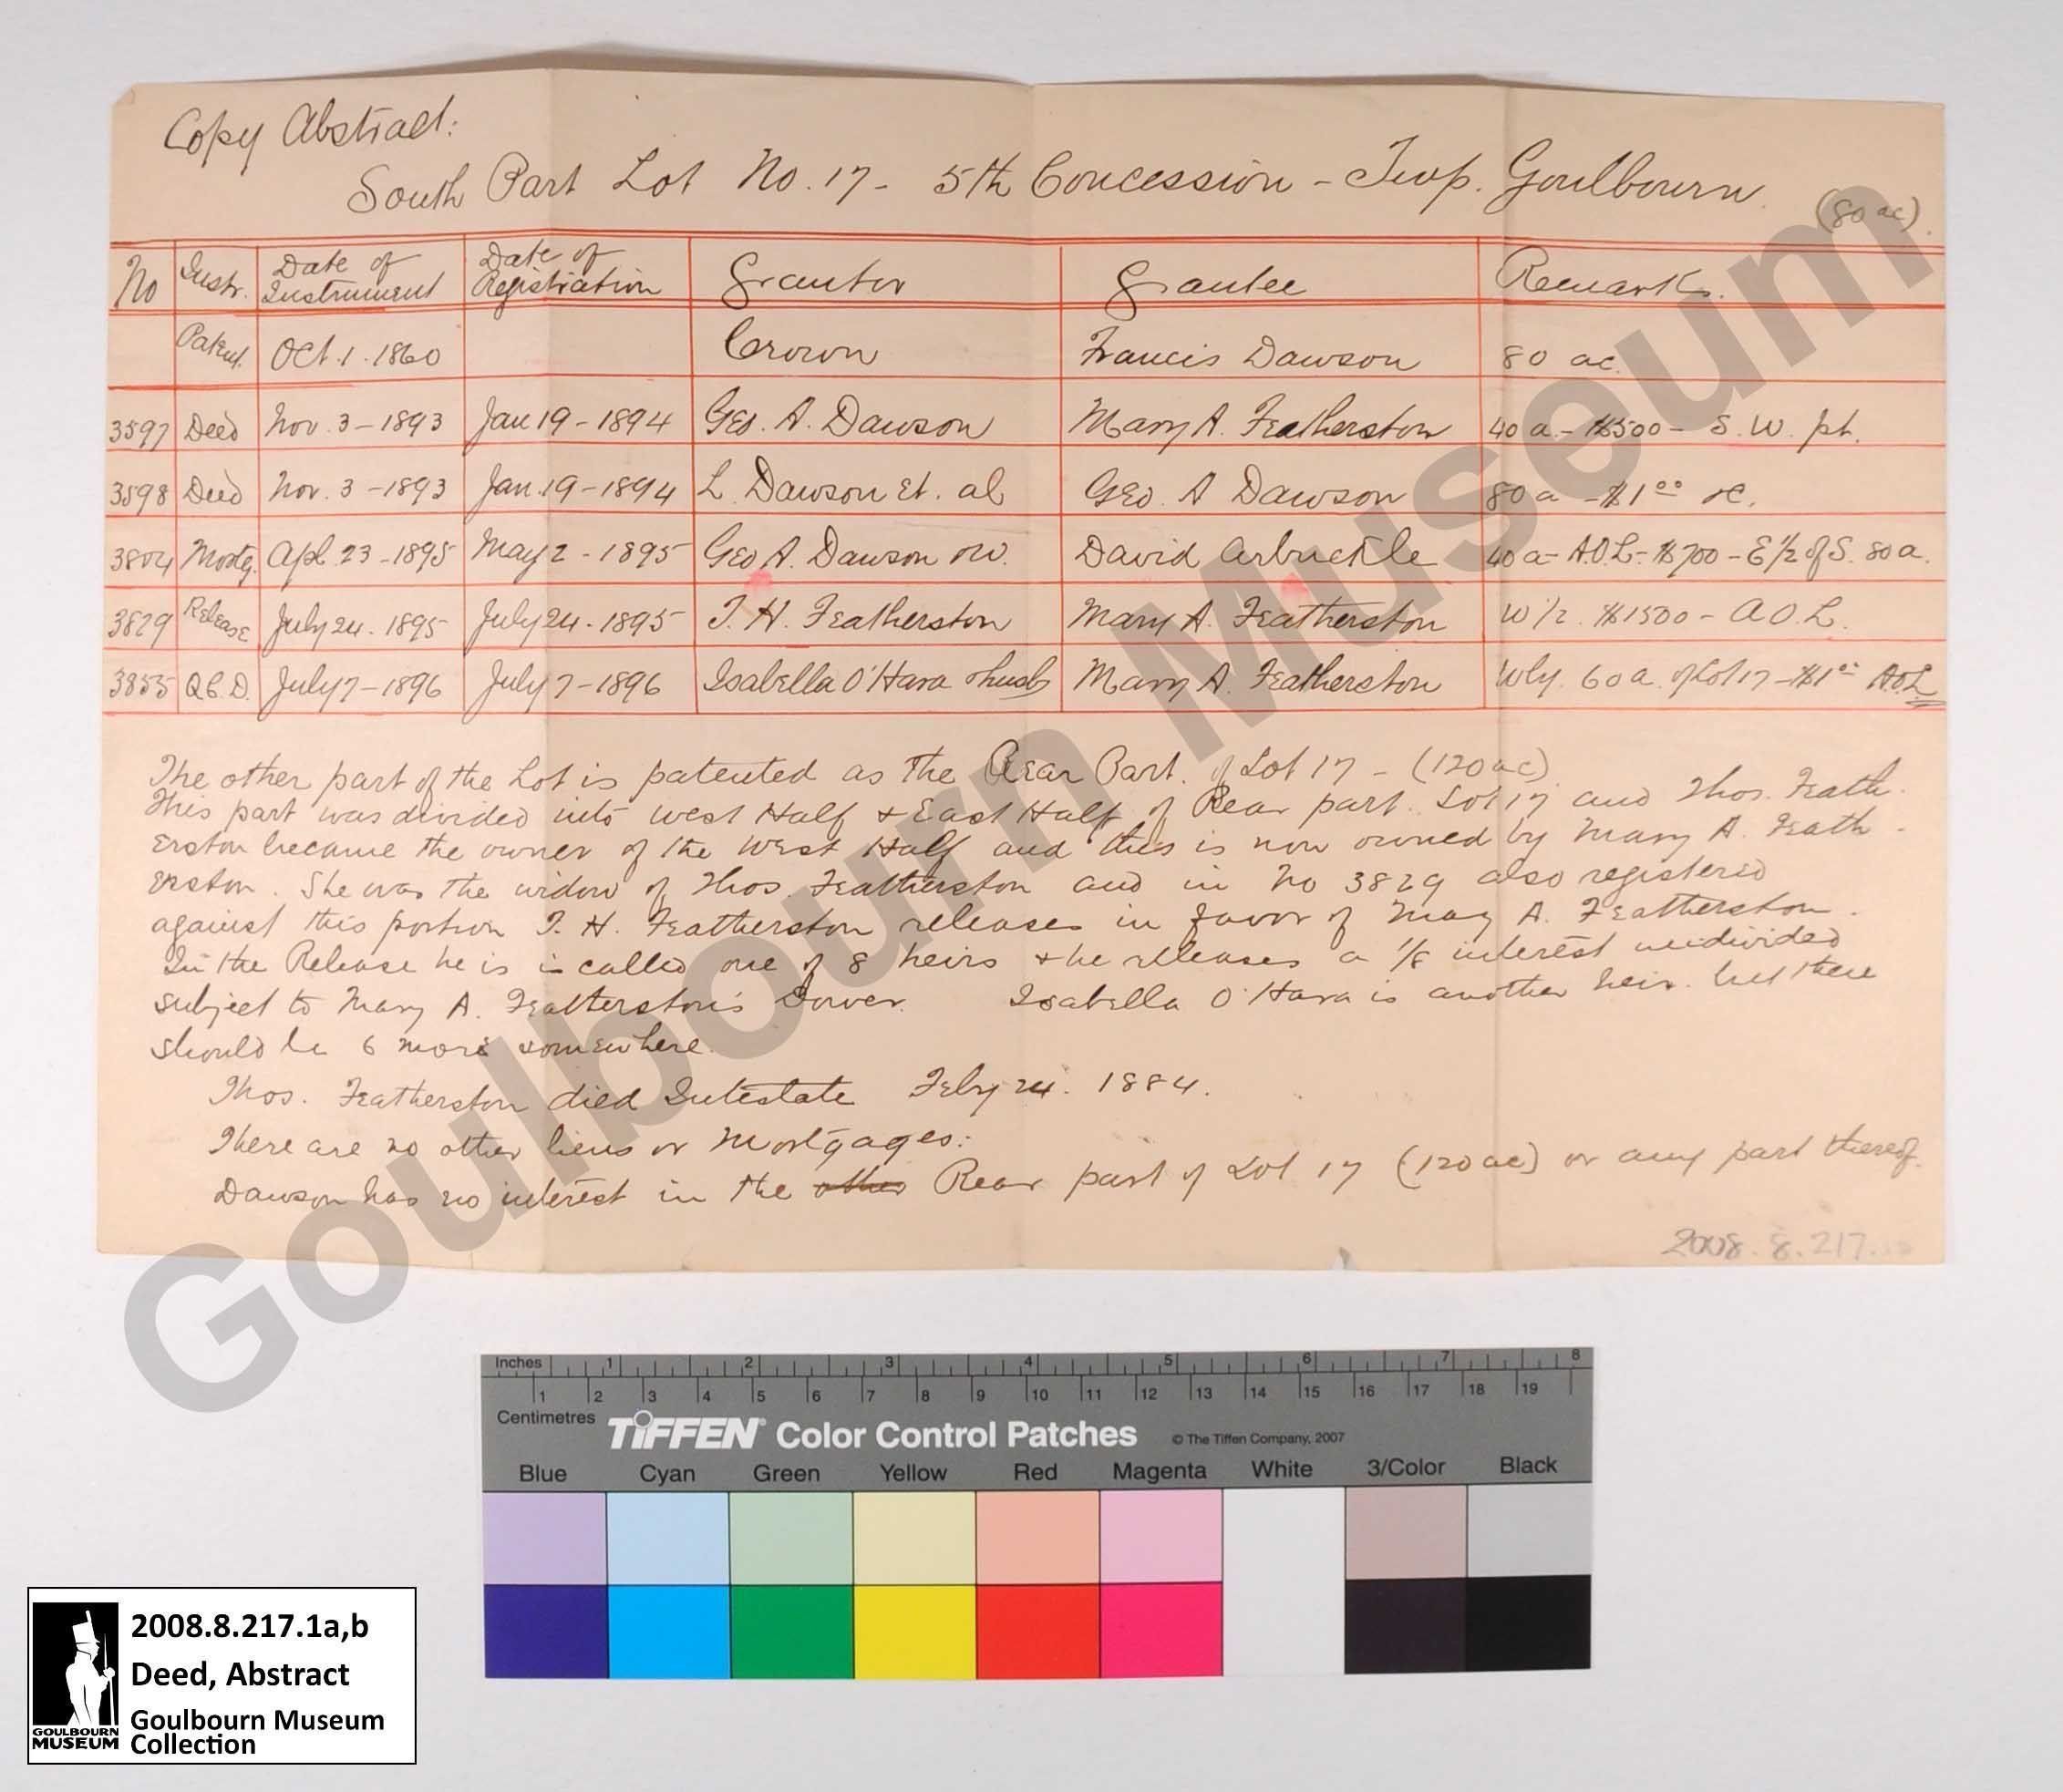 Copy Abstract:
South Part Lot No. 17 - 5th Concession - Twp. Goulbourn. (80 ac).
No Instr. Date of Instrument Date of Registration Grantor Grantee Remarks.
Patent. Oct. 1. 1860 Crown Francis Dawson 80 ac.
3597 Deed Nov. 3 - 1893 Jan 19 - 1894 Geo. A. Dawson Mary A. Featherston 40 a. - $500 - S. W. pt.
3598 Deed Nov. 3 - 1893 Jan. 19 - 1894 L. Dawson et. al Geo. A Dawson 80 a - $1 00 &c.
3804 Mortg. Apl. 23 - 1895 May 2 - 1895 Geo A. Dawson &w. David Arbuckle 40 a - A.O.L. - $700 - E 1/2 of S. 80 a.
3829 Release July 24. 1895 July 24. 1895 T. H. Featherston Mary A. Featherston W 1/2. $1500 - A O. L.
3855 Q.C.D. July 7 - 1896 July 7 - 1896 Isabella O'Hara & husb Mary A. Featherston Wly. 60 a. of Lot 17 - $1 00 A.O.L
The other part of the Lot is patented as the Rear Part. of Lot 17 - (120 ac)
This part was divided into West Half & East Half of Rear part. Lot 17 and Thos. Feath-
erston became the owner of the West Half and this is now owned by Mary A. Feath-
erston. She was the widow of Thos. Featherston and in No 3829 also registered
against this portion T. H. Featherston releases in favor of Mary A. Featherston.
In the Release he is is called one of 8 heirs & he releases a 1/8 interest undivided
subject to Mary A. Featherston's Dower. Isabella O'Hara is another heir. but there
should be 6 more somewhere.
Thos. Featherston died Intestate Feby 24. 1884.
There are no other liens or Mortgages:
Dawson has no interest in the other Rear part of Lot 17 (120 ac) or any part thereof.
2008.8.217.
Goulbourn Museum
Inches 1 2 3 4 5 6 7 8
1 2 3 4 5 6 7 8 9 10 11 12 13 14 15 16 17 18 19
Centimetres
TIFFEN Color Control Patches © The Tiffen Company, 2007
Blue Cyan Green Yellow Red Magenta White 3/Color Black
2008.8.217.1a,b
Deed, Abstract
Goulbourn Museum
Collection
GOULBOURN
MUSEUM